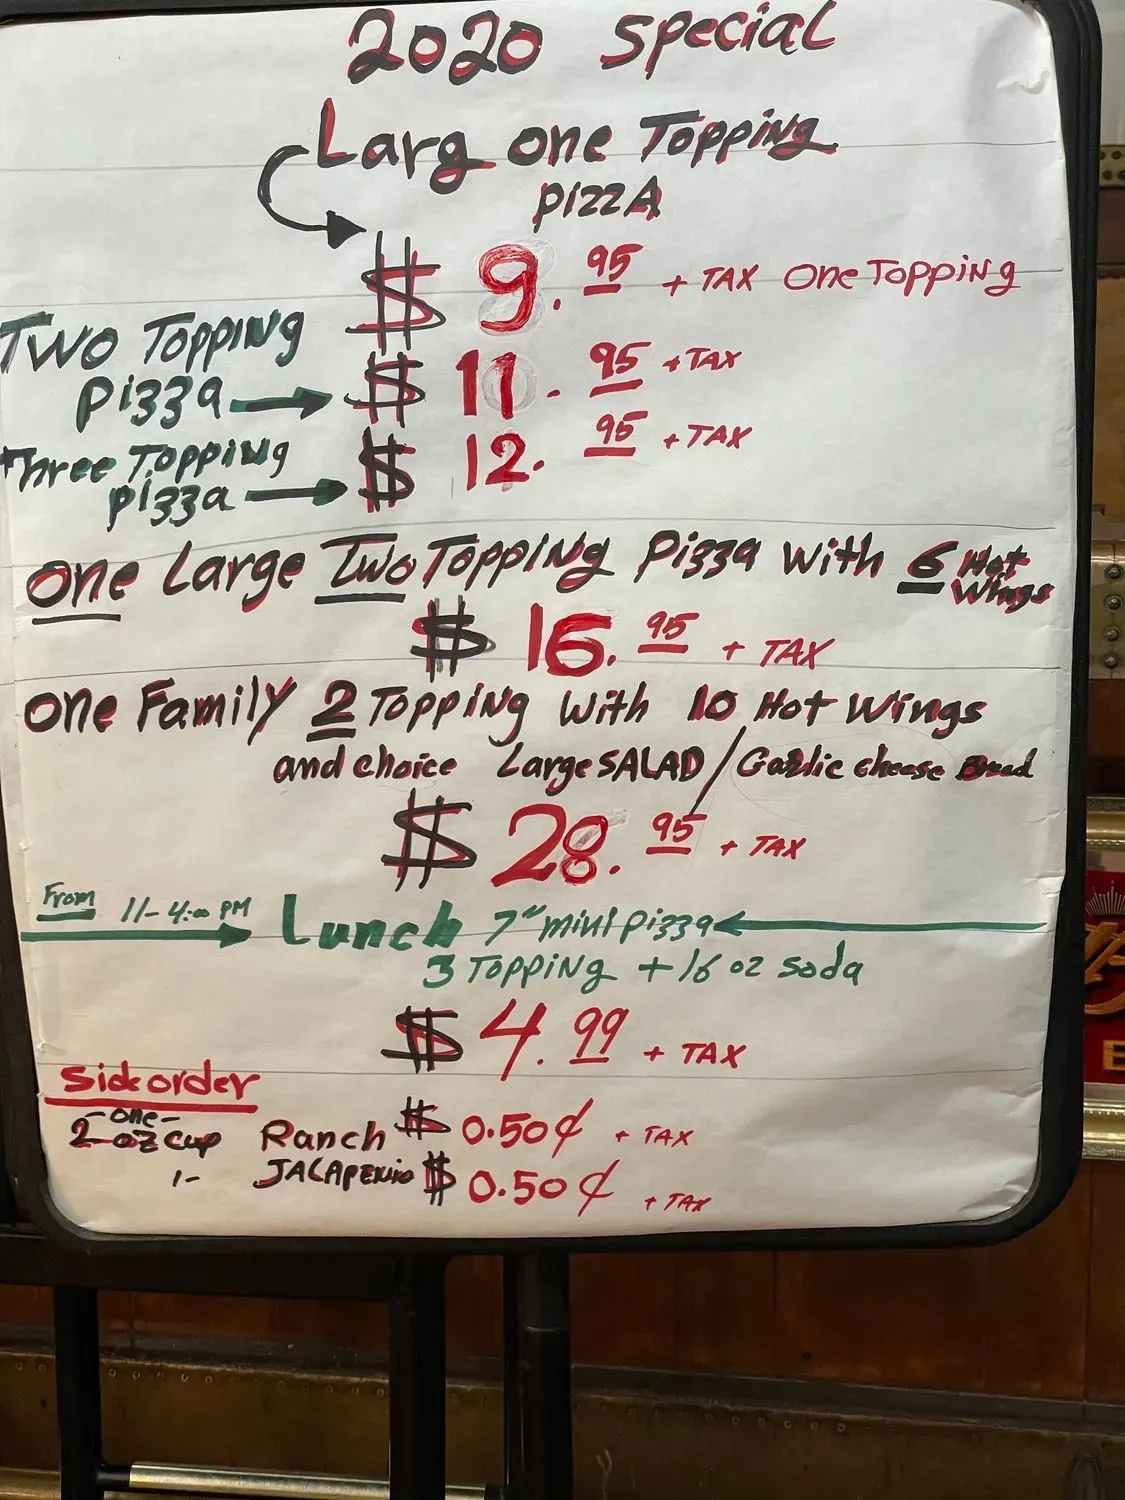 2020 Special
Larg one Topping
pizzA
$ 9.95 + TAX One Topping
Two Topping
pizza → $ 11.95 + TAX
Three Topping
pizza → $ 12.95 + TAX
One Large Two Topping Pizza with 6 Hot Wings
$ 16.95 + TAX
One Family 2 Topping with 10 Hot Wings
and choice Large SALAD / Garlic cheese Bread
$ 28.95 + TAX
From 11-4:00 PM Lunch 7" mini pizza
3 Topping + 16 oz soda
$ 4.99 + TAX
Side order
-one-
2 oz cup Ranch $ 0.50¢ + TAX
1- JALAPENIO $ 0.50¢ + TAX